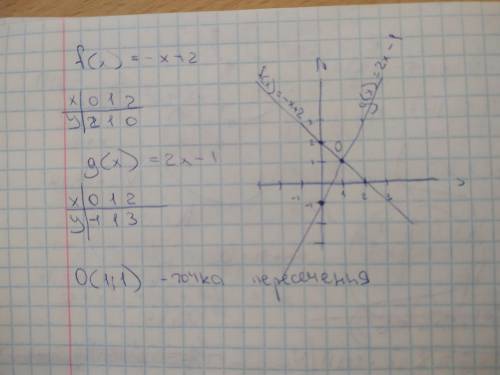 f(x) = -x+2
x 0 1 2
y 2 1 0
g(x) = 2x-1
x 0 1 2
y -1 1 3
O(1;1) - точка пересечения
f(x)=-x+2
g(x)=2x-1
O
2
1
1 2 3
-1